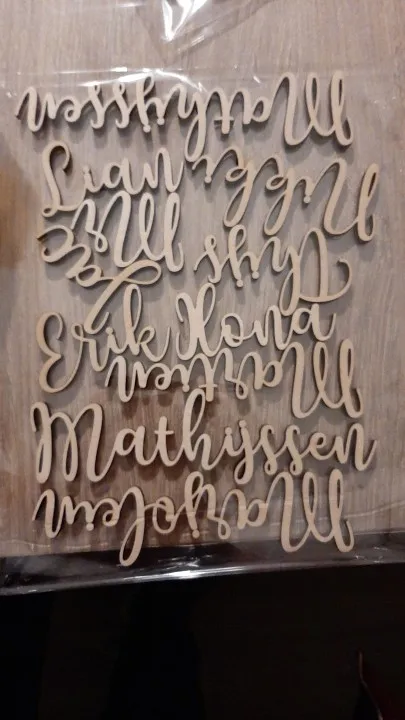 Mathijssen
Lian
Thijs
Erik Ilona
Martien
Mathijssen
Marjolein